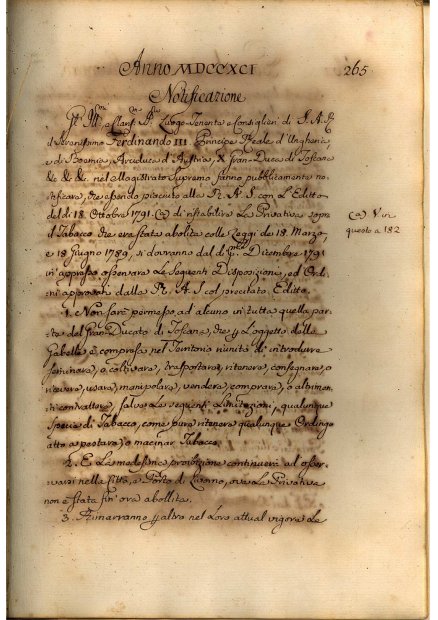 Anno MDCCXCI
265
Notificazione
Gl' Ill.mi e Clar.mi S.ri Luogo-Tenente e Consiglieri di S. A. R.
il Serenissimo Ferdinando III. Principe Reale d'Ungheria,
e di Boemia, Arciduca d'Austria, X Gran-Duca di Toscana
&c &c &c nel Magistrato Supremo fanno pubblicamente no-
tificare, che essendo piaciuto alla R. A. S. con l'Editto
del dì 18. Ottobre 1791. (a) di ristabilire la Privativa sopra
il Tabacco, che era stata abolita colle Leggi de 18. Marzo,
e 18 Giugno 1789, si dovranno dal dì p.mo Dicembre 1791
in appresso osservare le seguenti Disposizioni, ed Ordi-
ni approvati dalla R. A. S. col precitato Editto.
(a) V. in
questo a 182
1. Non sarà permesso ad alcuno in tutta quella par-
te del Gran-Ducato di Toscana, che p l'oggetto della
Gabella è compresa nel Territorio riunito di introdurre
seminare, o coltivare, trasportare, ritenere, consegnare, o
ricevere, usare, manipolare, vendere, comprare, o altrimen-
ti contrattare, salve le seguenti Limitazioni, qualunque
specie di Tabacco, come pure ritenere qualunque Ordingo
atto a pestare, o macinar Tabacco.
2. E la medesima proibizione continuerà ad osser-
varsi nella Città, e Porto di Livorno, ove la Privativa
non è stata fin' ora abolita.
3. Rimarranno p altro nel loro attual vigore le